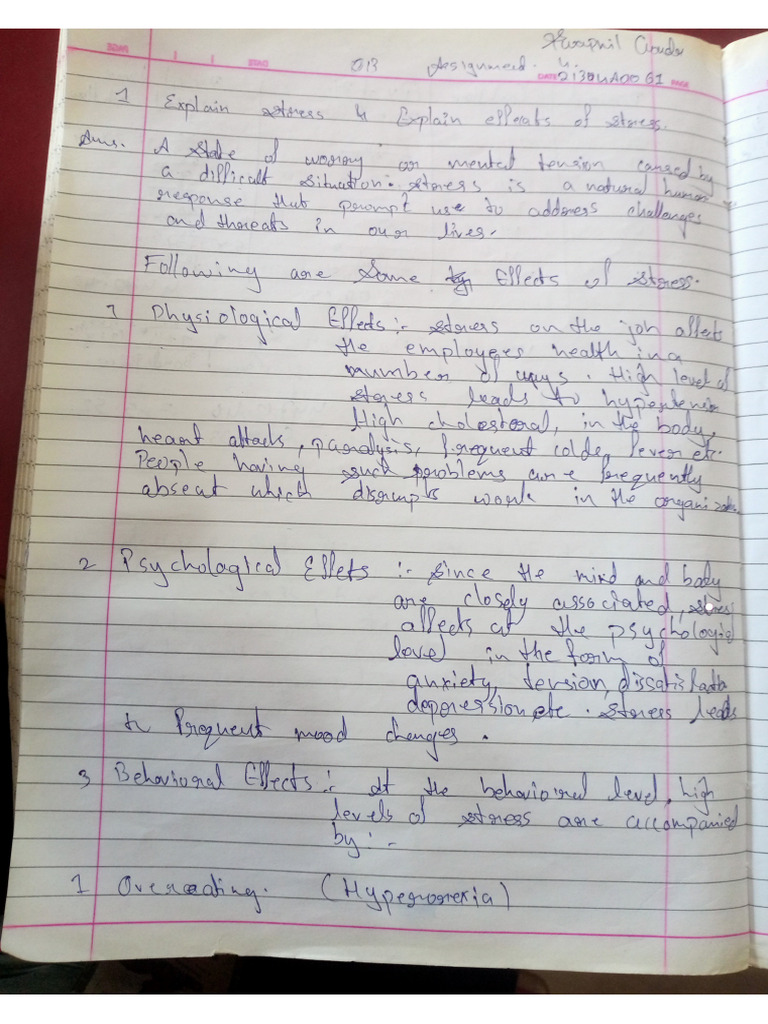 Swapnil
OB Assignment 4.
DATE PAGE
1 Explain stress & Explain effects of stress.
Ans. A state of worry or mental tension caused by
a difficult situation. stress is a natural human
response that prompt use to address challenges
and threats in our lives.
Following are some Effects of stress.
1 Physiological Effects :- stress on the job affect
the employees health in a
number of ways. High level of
stress leads to
High cholesteral, in the body,
heart attacks, paralysis, frequent colds, fever etc.
People having such problems are frequently
abseat which disrupts work in the
2 Psychological Effets :- Since the mind and body
are closely associated, stress
affects at the
level in the form of
anxiety, tension,
depression etc. stress leads
to frequent mood changes.
3 Behavioral Effects :- At the behavioral level, high
levels of stress are accompanied
by :-
1 Overeating. (Hyperorexia)